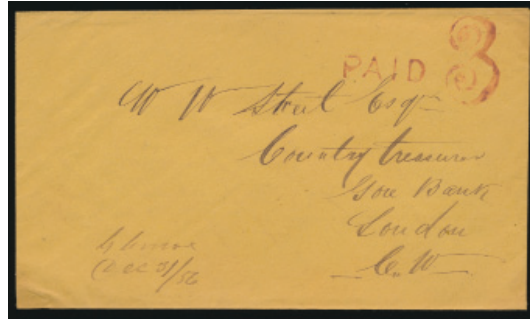 PAID 3
W W Street Esqr
Country treasurer
Gore Bank
London
C. W
Dec 31/56